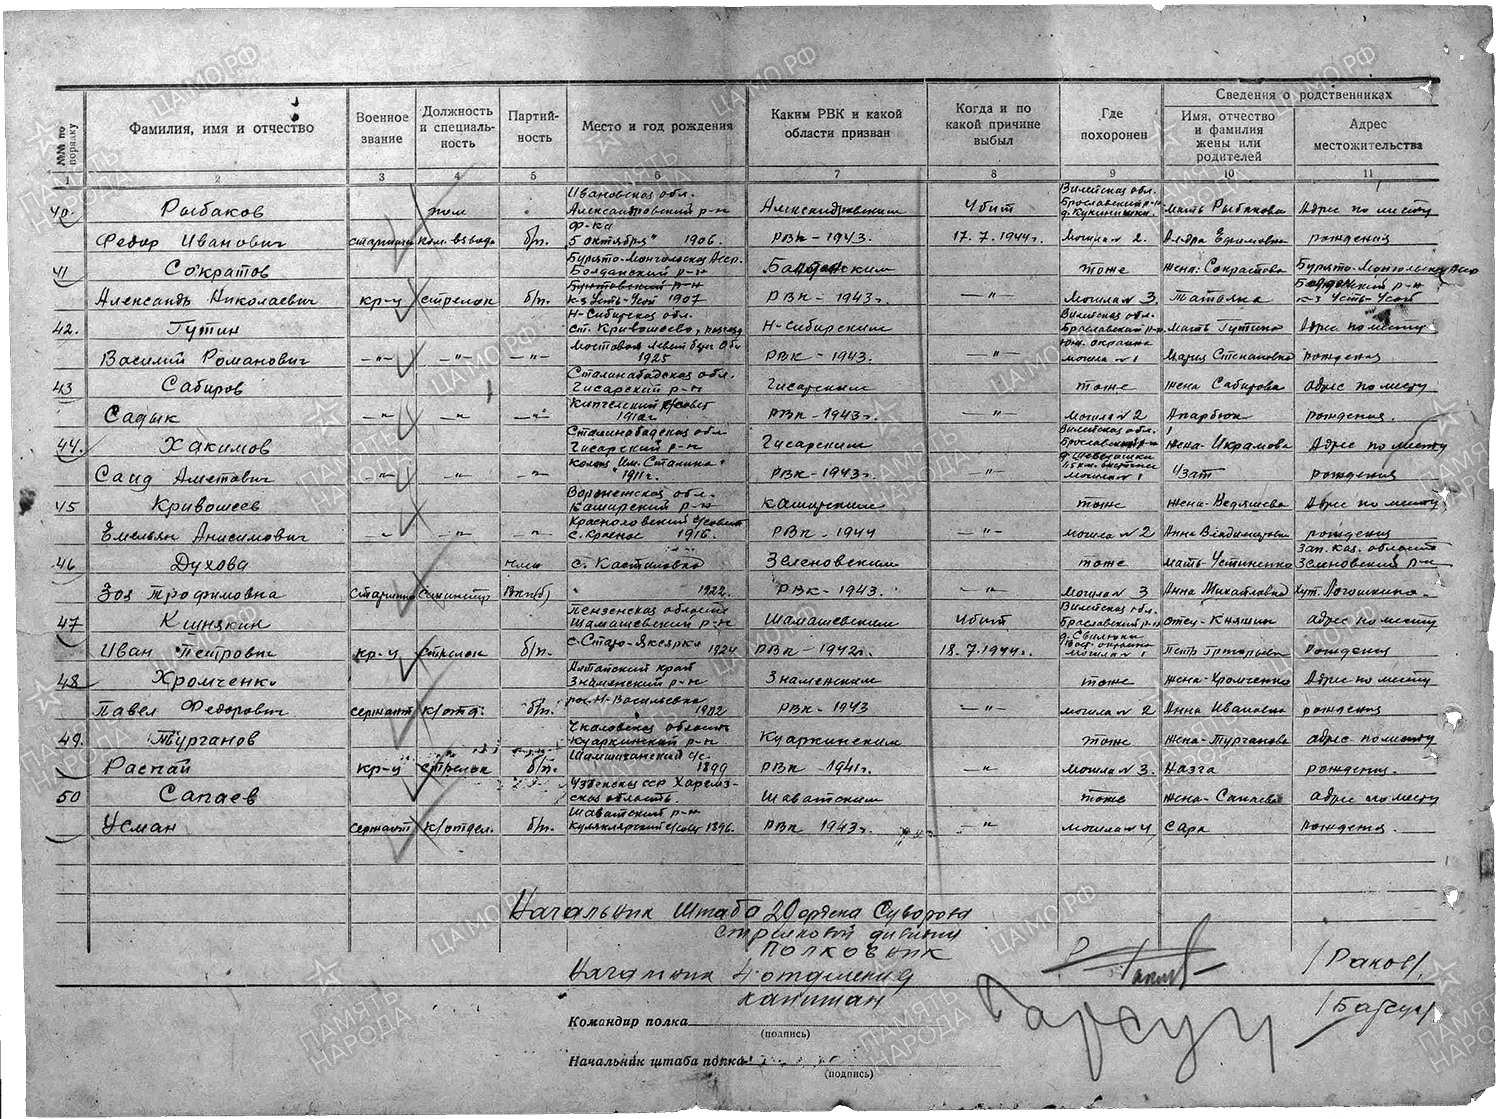 №№ по порядку
Фамилия, имя и отчество
Военное звание
Должность и специальность
Партийность
Место и год рождения
Каким РВК и какой области призван
Когда и по какой причине выбыл
Где похоронен
Сведения о родственниках
Имя, отчество и фамилия жены или родителей
Адрес местожительства
1 2 3 4 5 6 7 8 9 10 11
40. Рыбаков пом Ивановская обл. Александровский р-н Александровским Убит Вилейская обл. Браславский р-н мать Рыбакова Адрес по месту
Федор Иванович старшина ком. взвода б/п. ф-ка 5 октября" 1906. РВК-1943. 17.7.1944г. могила 2. Ефимовна рождения
41 Сократов Бурято-Монгольская Асср. р-н тоже жена: Сократова Бурято-Монгольская
Александр Николаевич кр-ц стрелок б/п к-з Усть-Усой 1907 РВК-1943г. -"- могила № 3 Татьяна к-з Усть-Усой
42. Гутин Н-Сибирская обл. ст. Кривощеево, Н-Сибирским Вилейская обл. Браславский р-н мать Гутина Адрес по месту
Василий Романович -"- -"- -"- Мостовой левый берег Оби 1925 РВК-1943. -"- Юж. окраина могила № 1 Мария Степановна рождения
43 Сабиров Сталинабадская обл. Гисарский р-н Гисарским тоже жена Сабирова адрес по месту
Садык -"- -"- -"- с/совет 1910г. РВК-1943г. -"- могила № 2 рождения.
44. Хакимов Сталинабадская обл Гисарский р-н Гисарским Вилейская обл. Браславский р-н жена-Икрамова Адрес по месту
Саид Аметович -"- -"- -"- Колхоз "Им. Сталина" 1911г. РВК-1943г. -"- могила № 1 Узат рождения
45 Кривошеев Воронежская обл. Кашарский р-н Кашарским тоже жена- Адрес по месту
Емельян Анисимович -"- -"- -"- с/совет с. Красное 1916. РВК-1944 -"- могила № 2 Анна Владимировна рождения
46 Духова член с. Зеленовским тоже мать-Устименко Зап. каз. область Зеленовский р-н
Зоя Трофимовна старшина санинстр Вкп(б) 1922. РВК-1943. -"- могила № 3 Анна Михайловна хут.
47 Кшнякин Пензенская область Шамашевский р-н Шамашевским Убит Вилейская обл. Браславский р-н отец-Княшин адрес по месту
Иван Петрович кр-ц стрелок б/п. 1924 РВК-1942г. 18.7.1944г. могила 1 Петр Григорьев. рождения
48 Хромченко Алтайский край Знаменский р-н Знаменским тоже жена-Хромченко Адрес по месту
Павел Федорович сержант к/отд. б/п. пос. Н-Васильевка 1902 РВК-1943 -"- могила № 2 Анна Ивановна рождения
49. Турганов Чкаловская область Куаркинский р-н Куаркинским тоже жена-Турганова адрес по месту
Распай кр-ц стрелок б/п. с/с- 1899 РВК-1941г. -"- могила № 3. Назга рождения.
50 Сапаев Узбекская ССР Хорезмская область. Шаватским тоже жена-Сапаева адрес по месту
Усман сержант к/отдел. б/п. Шаватский р-н с/совет 1896. РВК 1943г. -"- могила № 4 Сара рождения.
Начальник штаба 20 ордена Суворова
стрелковой дивизии
полковник
/Раков/.
Начальник 4 отделения
капитан
/Барсуч/
Командир полка
(подпись)
Начальник штаба полка
(подпись)
ПАМЯТЬ НАРОДА
ЦАМО.РФ